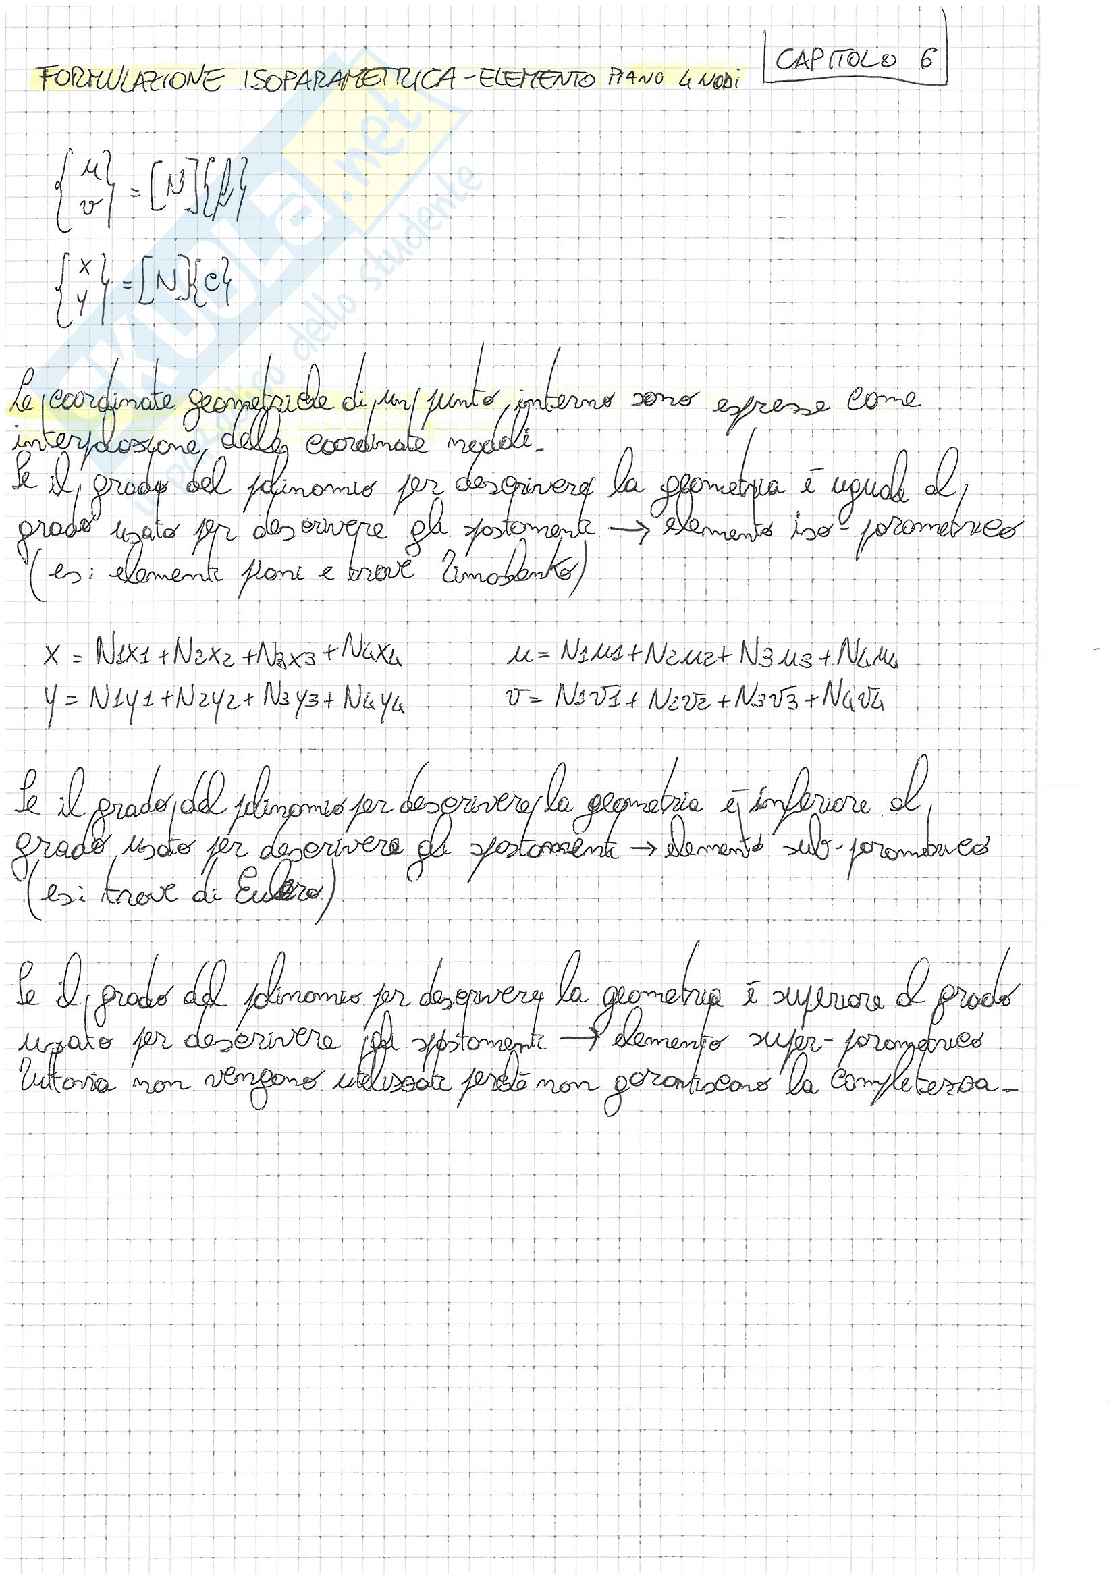 CAPITOLO 6
FORMULAZIONE ISOPARAMETRICA - ELEMENTO PIANO 4 NODI
{u v} = [N]{f}
{x y} = [N]{c}
Le coordinate geometriche di un punto interno sono espresse come
interpolazione delle coordinate nodali.
Se il grado del polinomio per descrivere la geometria è uguale al
grado usato per descrivere gli spostamenti → elemento iso-parametrico
(es: elementi piani e trave Timoshenko)
x = N1x1 + N2x2 + N3x3 + N4x4 u = N1u1 + N2u2 + N3u3 + N4u4
y = N1y1 + N2y2 + N3y3 + N4y4 v = N1v1 + N2v2 + N3v3 + N4v4
Se il grado del polinomio per descrivere la geometria è inferiore al
grado usato per descrivere gli spostamenti → elemento sub-parametrico
(es: trave di Eulero)
Se il grado del polinomio per descrivere la geometria è superiore al grado
usato per descrivere gli spostamenti → elemento super-parametrico
Tuttavia non vengono utilizzati perché non garantiscono la completezza -
SKUOLA.net
dello studente